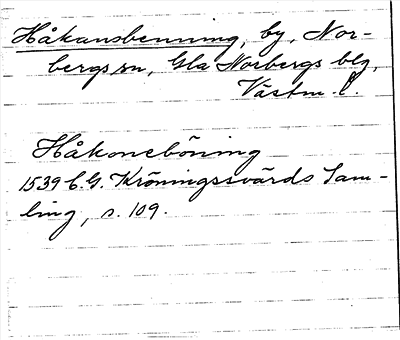 Håkansbenning, by, Nor-
bergs sn, Gla Norbergs blg,
Västm. l.
Håkoneböning
1539 C.G. Kröningssvärds Sam-
ling, s. 109.